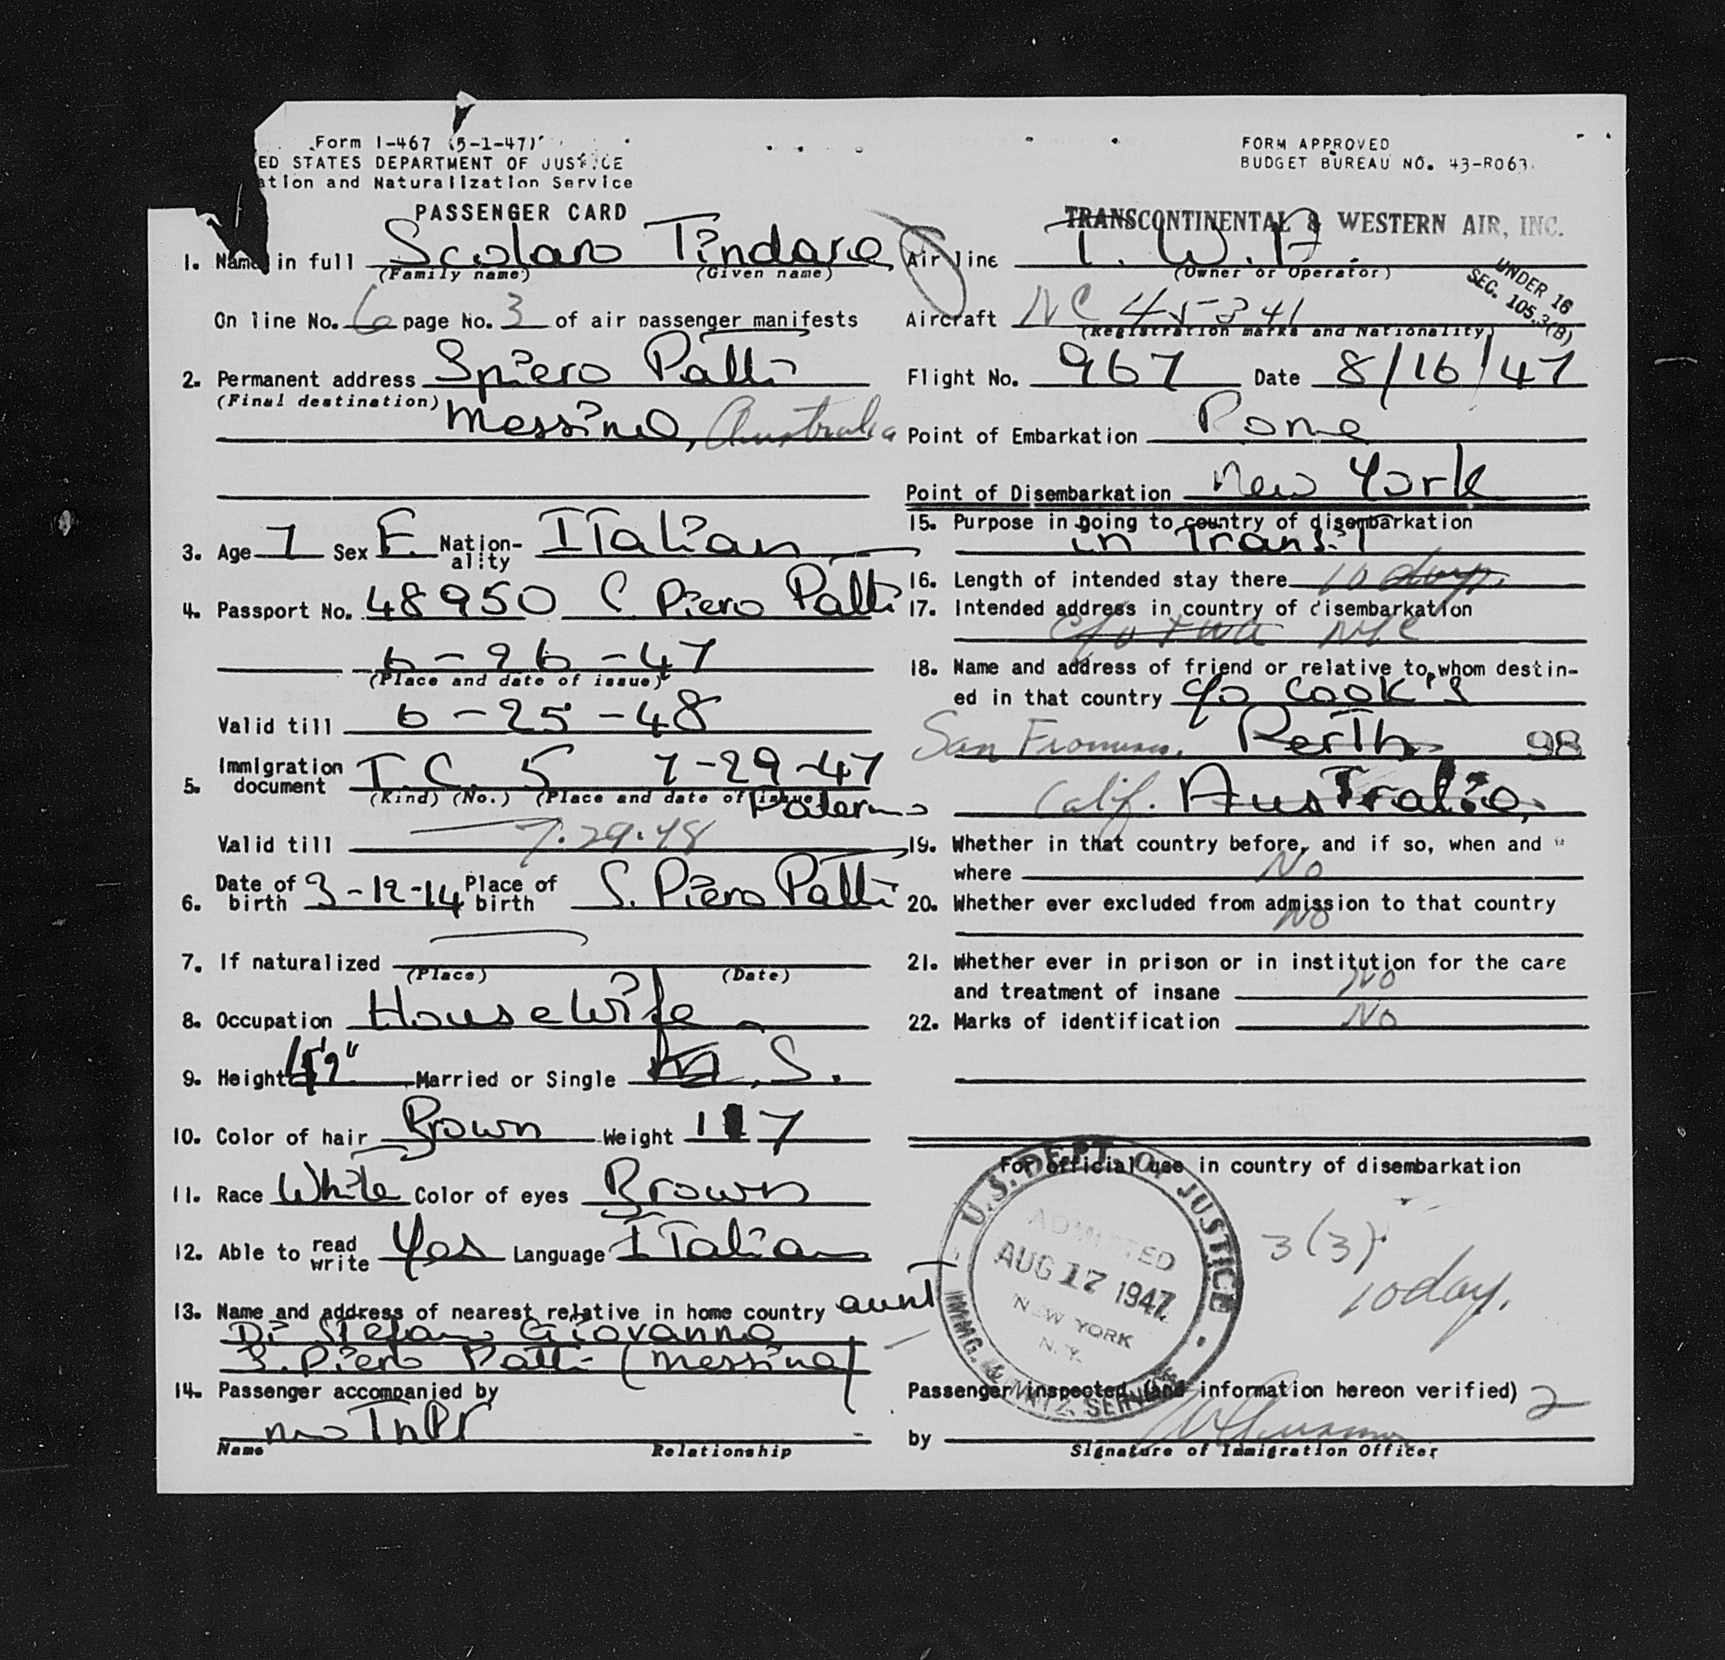 Form I-467 (5-1-47)
ED STATES DEPARTMENT OF JUSTICE
ation and Naturalization Service
PASSENGER CARD
FORM APPROVED
BUDGET BUREAU NO. 43-R063.
TRANSCONTINENTAL & WESTERN AIR, INC.
1. Name in full Scolaro Tindara
(Family name) (Given name)
On line No. 6 page No. 3 of air passenger manifests
2. Permanent address S piero Patti
(Final destination) Messina, Australia
3. Age 7 Sex F. Nation-ality ITalian
4. Passport No. 48950 S. Piero Patti
6-26-47
(Place and date of issue)
Valid till 6-25-48
5. Immigration document T.C. 5 7-29-47
(Kind) (No.) (Place and date of issue) Palermo
Valid till 7.29.48
6. Date of birth 3-12-14 Place of birth S. Piero Patti
7. If naturalized
(Place) (Date)
8. Occupation Housewife
9. Height 4'9" Married or Single M, S.
10. Color of hair Brown Weight 117
11. Race White Color of eyes Brown
12. Able to read write Yes Language ITalian
13. Name and address of nearest relative in home country aunT
Di Stefano Giovanna
S. Piero Patti (Messina)
14. Passenger accompanied by
moTher
Name Relationship
Air line T. W. A.
(Owner or Operator)
UNDER 16
SEC. 105.3(B)
Aircraft NC 45341
(Registration marks and Nationality)
Flight No. 967 Date 8/16/47
Point of Embarkation Rome
Point of Disembarkation New York
15. Purpose in going to country of disembarkation
in TransiT
16. Length of intended stay there 10 days.
17. Intended address in country of disembarkation
c/o TWA NYC
18. Name and address of friend or relative to whom destin-
ed in that country c/o Cook's
San Francisco, PerTh 98
Calif. AusTralia.
19. Whether in that country before, and if so, when and
where No
20. Whether ever excluded from admission to that country
No
21. Whether ever in prison or in institution for the care
and treatment of insane No
22. Marks of identification No
For official use in country of disembarkation
U.S. DEPT. OF JUSTICE
ADMITTED
AUG 17 1947
NEW YORK
N.Y.
IMMG. & NATZ. SERVICE
3(3)
10 day.
Passenger inspected (and information hereon verified) 2
by
Signature of Immigration Officer